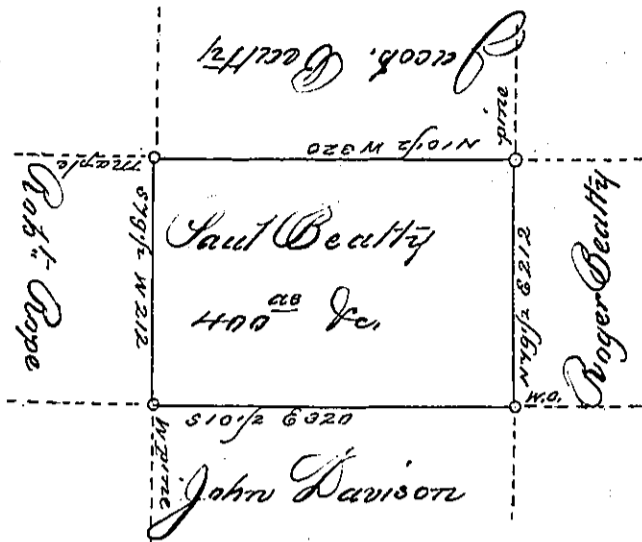 Jacob, Beatty
pine
N 10 1/2 W 320
maple
Rob't. Rope
S 79 1/2 W 212
Saul Beatty
400 as &c.
N 79 1/2 E 212
Roger Beatty
W.O.
S 10 1/2 E 320
W pine
John Davison